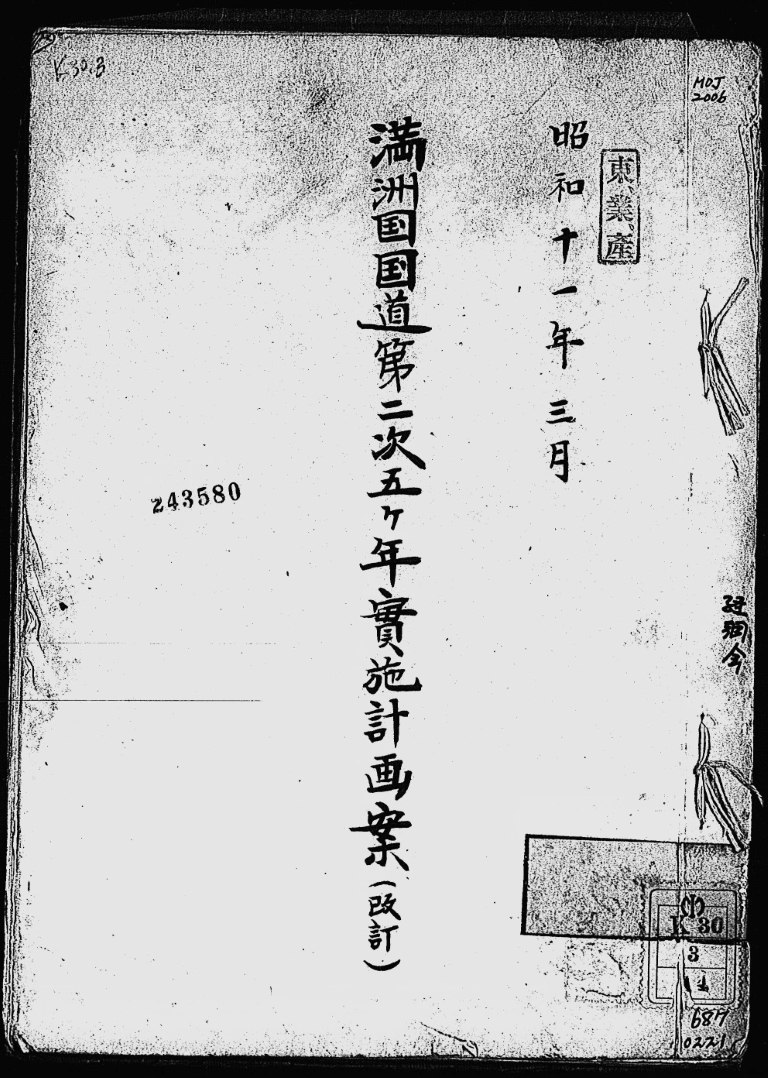 K30.3
MOJ
2006
東業産
昭和十一年三月
満洲国国道第二次五ヶ年實施計画案(改訂)
243580
K 30
3
687
0221